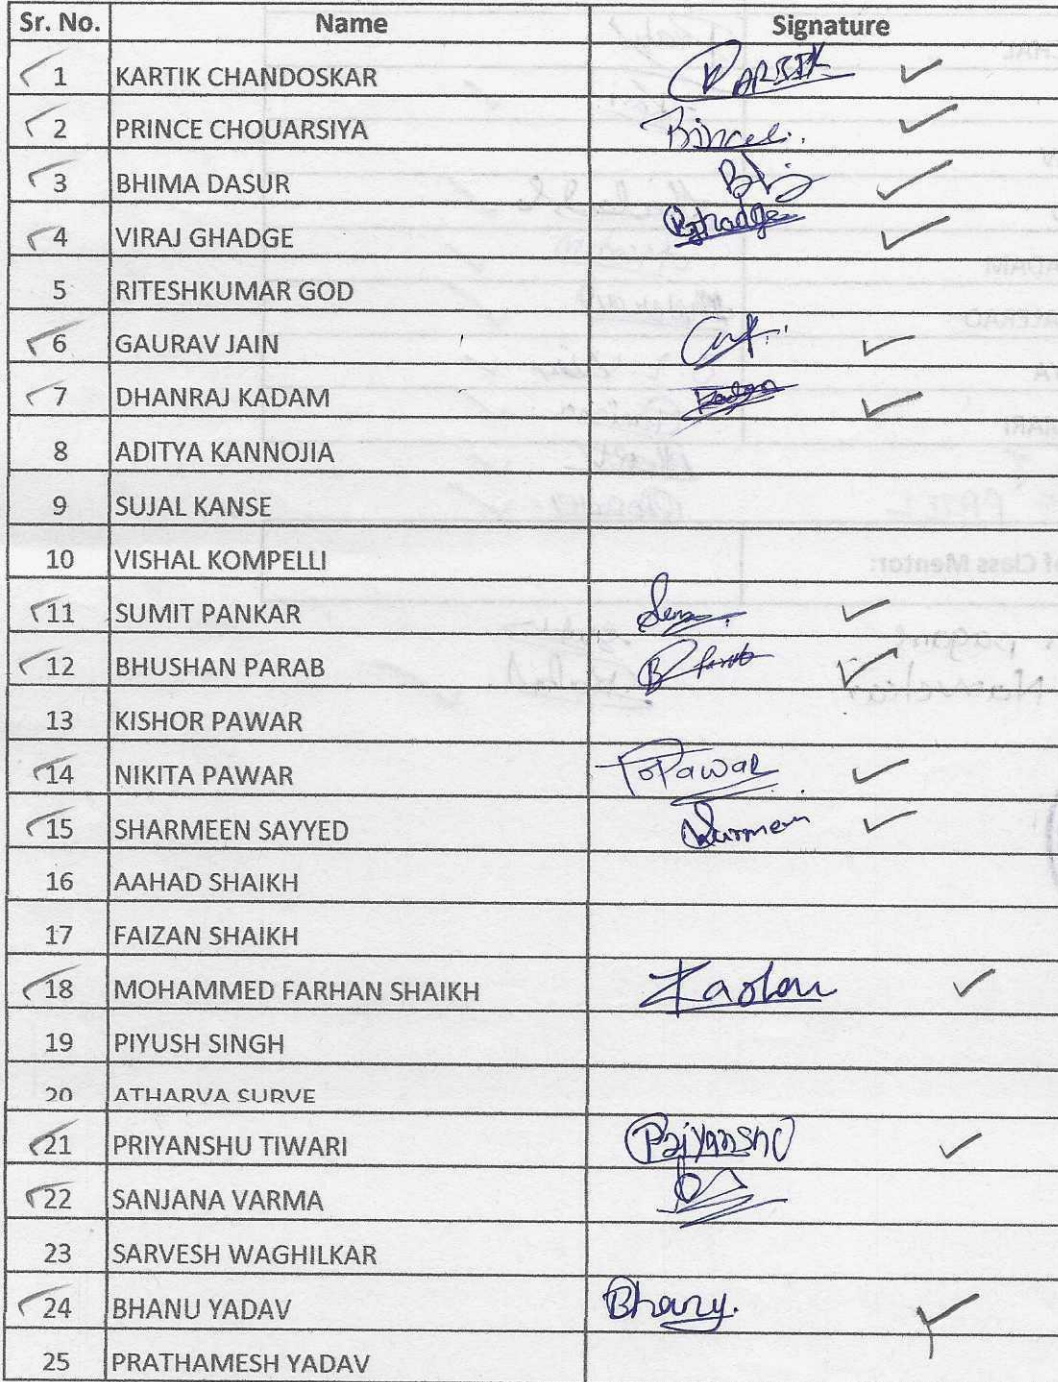 Sr. No. Name Signature
1 KARTIK CHANDOSKAR KARTIK
2 PRINCE CHOUARSIYA
3 BHIMA DASUR
4 VIRAJ GHADGE Ghadge
5 RITESHKUMAR GOD
6 GAURAV JAIN
7 DHANRAJ KADAM
8 ADITYA KANNOJIA
9 SUJAL KANSE
10 VISHAL KOMPELLI
11 SUMIT PANKAR
12 BHUSHAN PARAB
13 KISHOR PAWAR
14 NIKITA PAWAR Pawar
15 SHARMEEN SAYYED
16 AAHAD SHAIKH
17 FAIZAN SHAIKH
18 MOHAMMED FARHAN SHAIKH
19 PIYUSH SINGH
20 ATHARVA SURVE
21 PRIYANSHU TIWARI Priyanshu
22 SANJANA VARMA
23 SARVESH WAGHILKAR
24 BHANU YADAV Bhanu.
25 PRATHAMESH YADAV